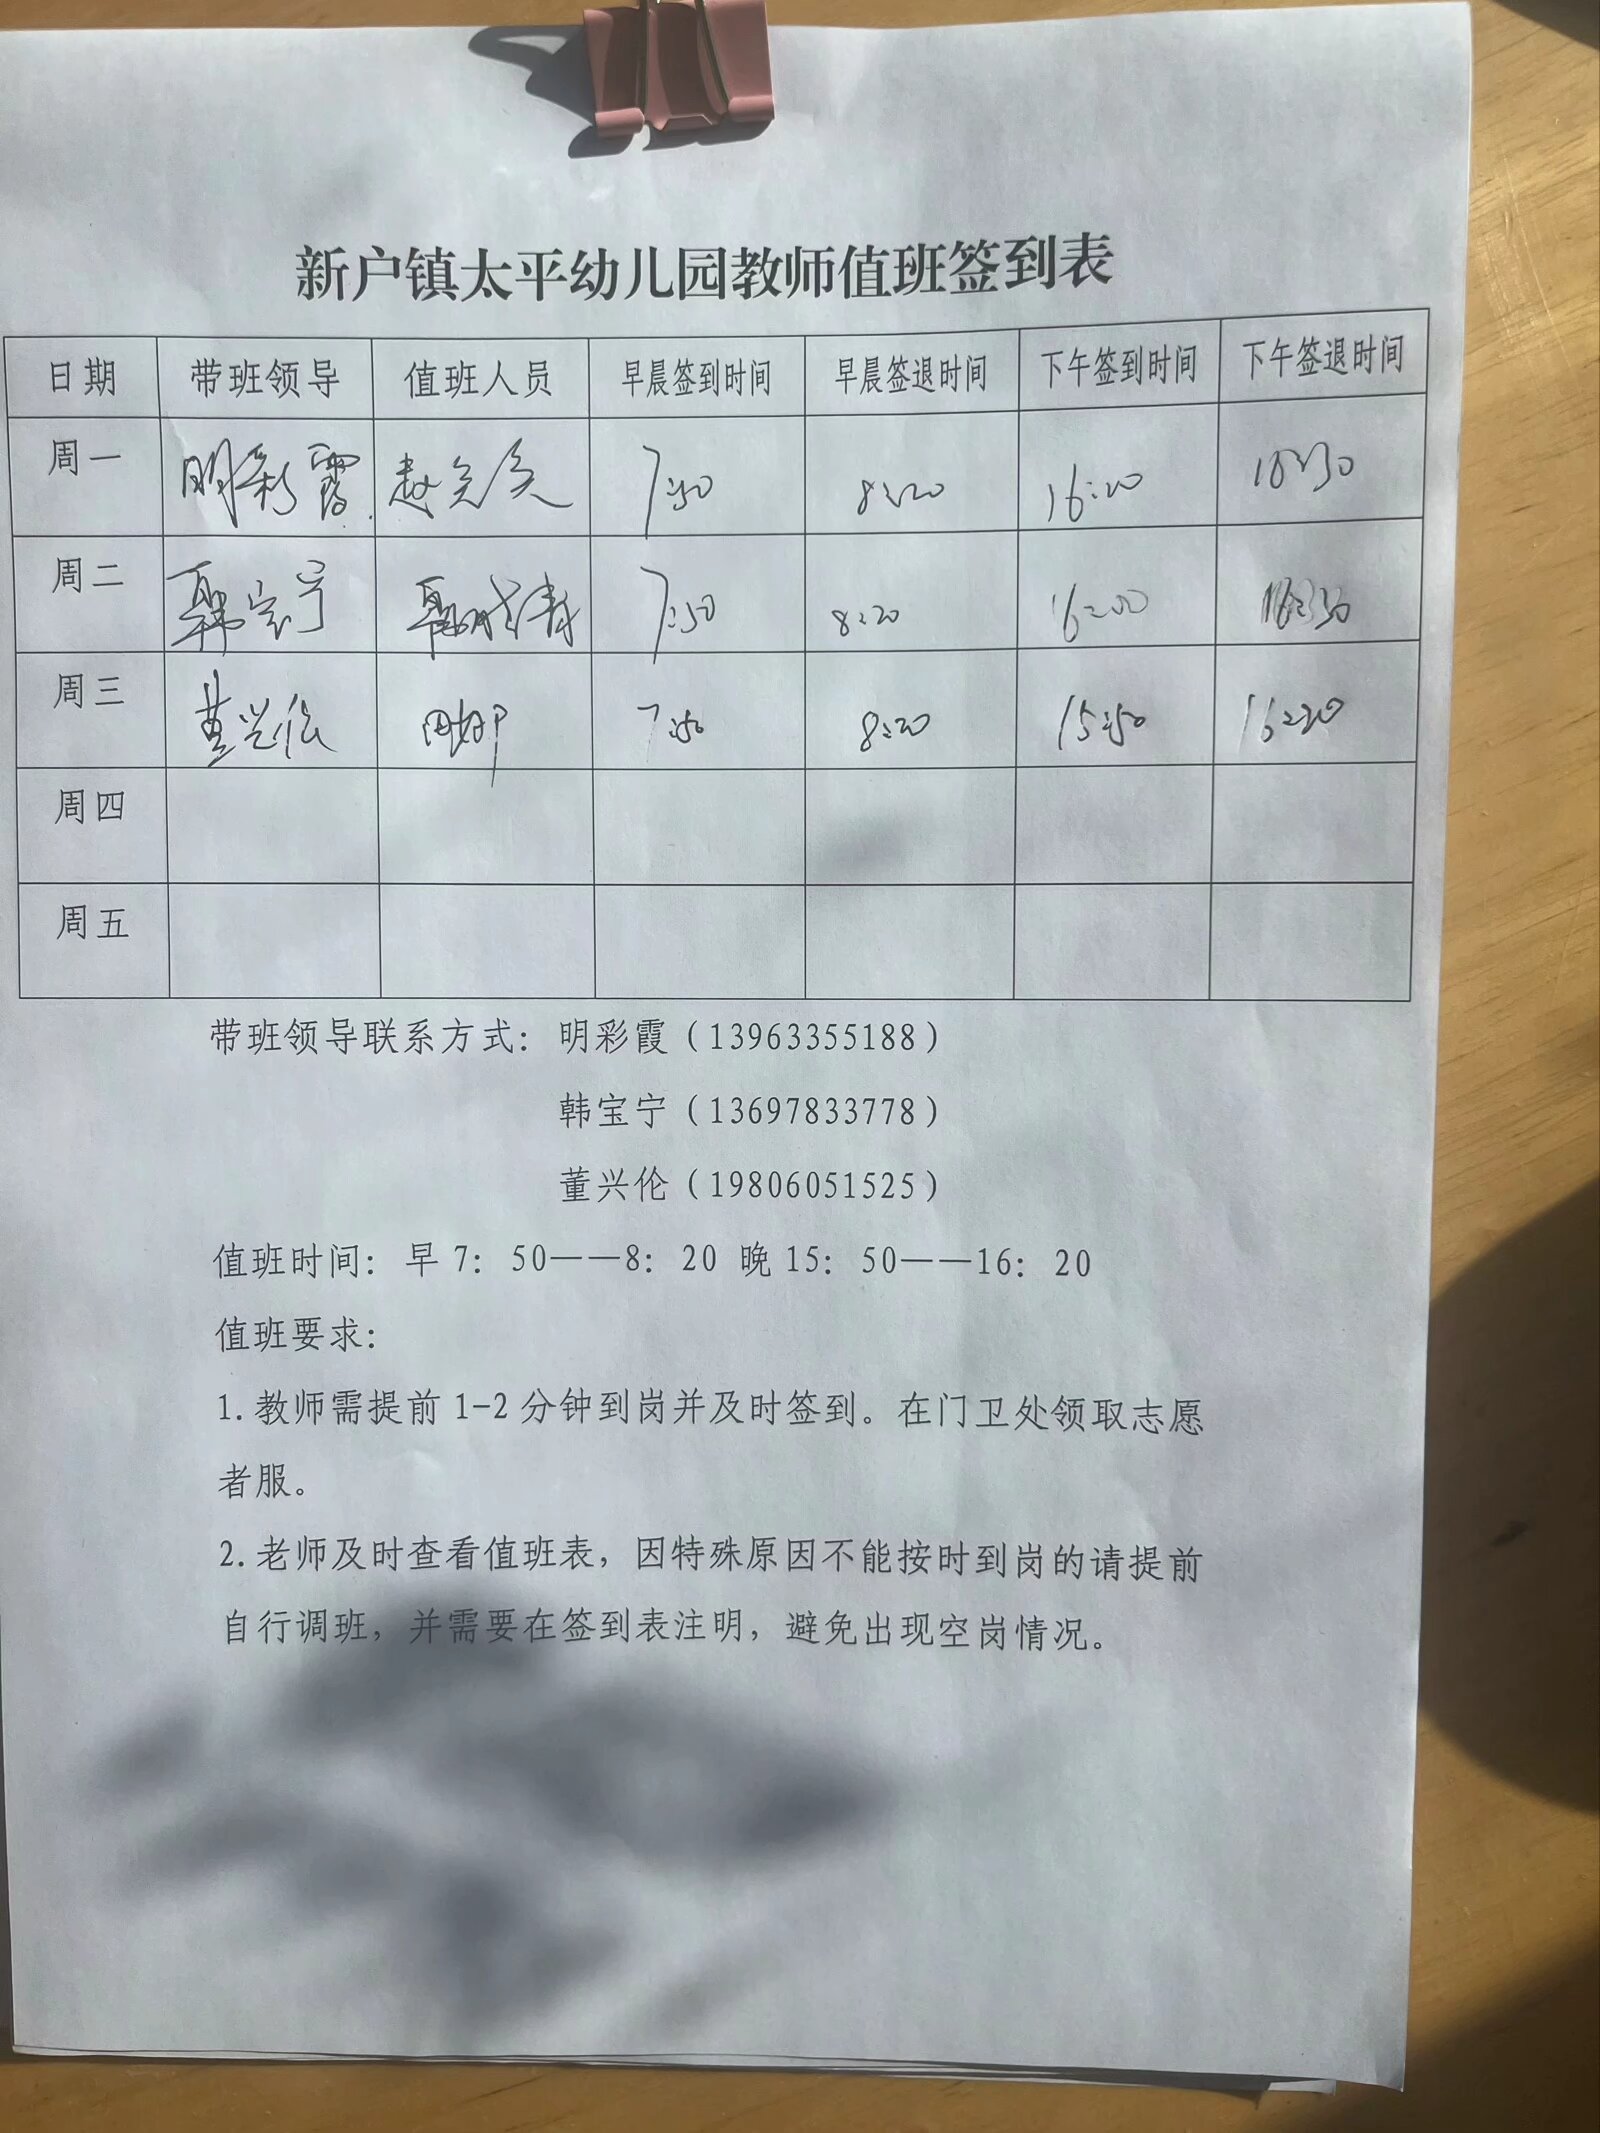 新户镇太平幼儿园教师值班签到表
日期 带班领导 值班人员 早晨签到时间 早晨签退时间 下午签到时间 下午签退时间
周一 明彩霞 7:50 8:20 16:20
周二 韩宝宁 7:50 8:20 16:00
周三 董兴伦 田娜 7:50 8:20 15:50 16:20
周四
周五
带班领导联系方式：明彩霞（13963355188）
韩宝宁（13697833778）
董兴伦（19806051525）
值班时间：早 7：50——8：20 晚 15：50——16：20
值班要求：
1.教师需提前 1-2 分钟到岗并及时签到。在门卫处领取志愿
者服。
2.老师及时查看值班表，因特殊原因不能按时到岗的请提前
自行调班，并需要在签到表注明，避免出现空岗情况。